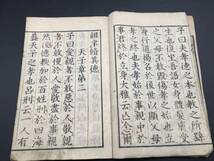 子曰夫孝德之本也教之所繇
生也復坐吾語女身體髮膚
受之父母不敢毀傷孝之始也
立身行道揚名於後世以顯父
母孝之終也夫孝始於事親中於
事君終於立身大雅云
祖聿脩其德
天子章第二
子曰愛親者不敢惡於人敬親
者不敢慢於人愛敬盡於事親
然後德教加於百姓刑於四海
蓋天子之孝也呂刑云一人有